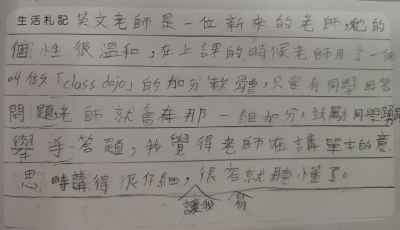 生活札記 英文老師是一位新來的老師,她的
個性很溫和,在上課的時候老師用了一個
叫做「class dojo」的加分軟體,只要有同學回答
問題老師就會在那一組加分,鼓勵同學踴躍
舉手答題,我覺得老師在講單字的意
思時講得很仔細,很容就聽懂了。
讓我 易